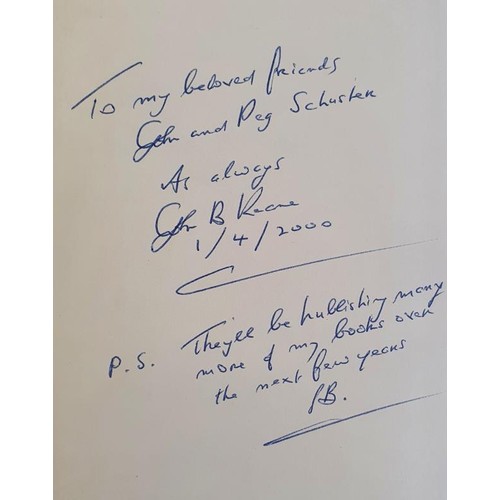 To my beloved friends
John and Peg Schuster
As always
John B Keane
1/4/2000
P.S. They'll be publishing many
more of my books over
the next few years
JB.